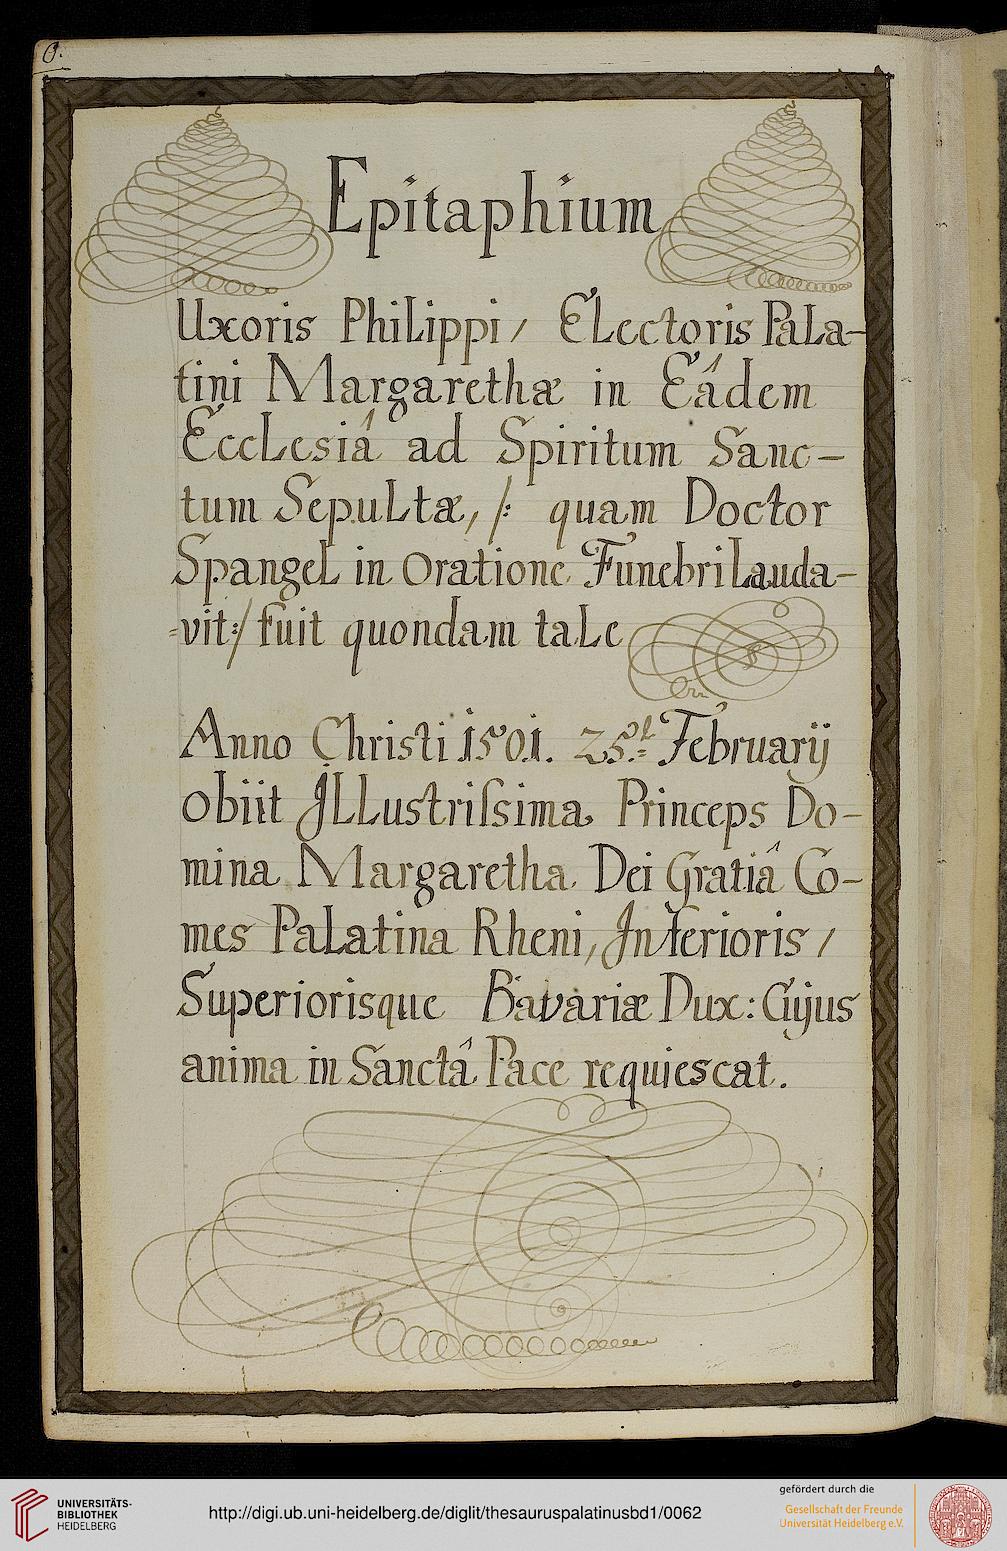 6.
Epitaphium
Uxoris Philippi / Electoris Pala-
tini Margarethæ in Eâdem
Ecclesiâ ad Spiritum Sanc-
tum Sepultæ, /: quam Doctor
Spangel in Oratione Funebri Lauda-
=vit :/ fuit quondam tale
Anno Christi 1501. 25.t Februarij
obiit Jllustriſsima Princeps Do-
mina Margaretha Dei Gratiâ Co-
mes Palatina Rheni, Inferioris /
Superiorisque Bavariæ Dux: Cujus
anima in Sanctâ Pace requiescat.
UNIVERSITÄTS-
BIBLIOTHEK
HEIDELBERG
http://digi.ub.uni-heidelberg.de/diglit/thesauruspalatinusbd1/0062
gefördert durch die
Gesellschaft der Freunde
Universität Heidelberg e.V.